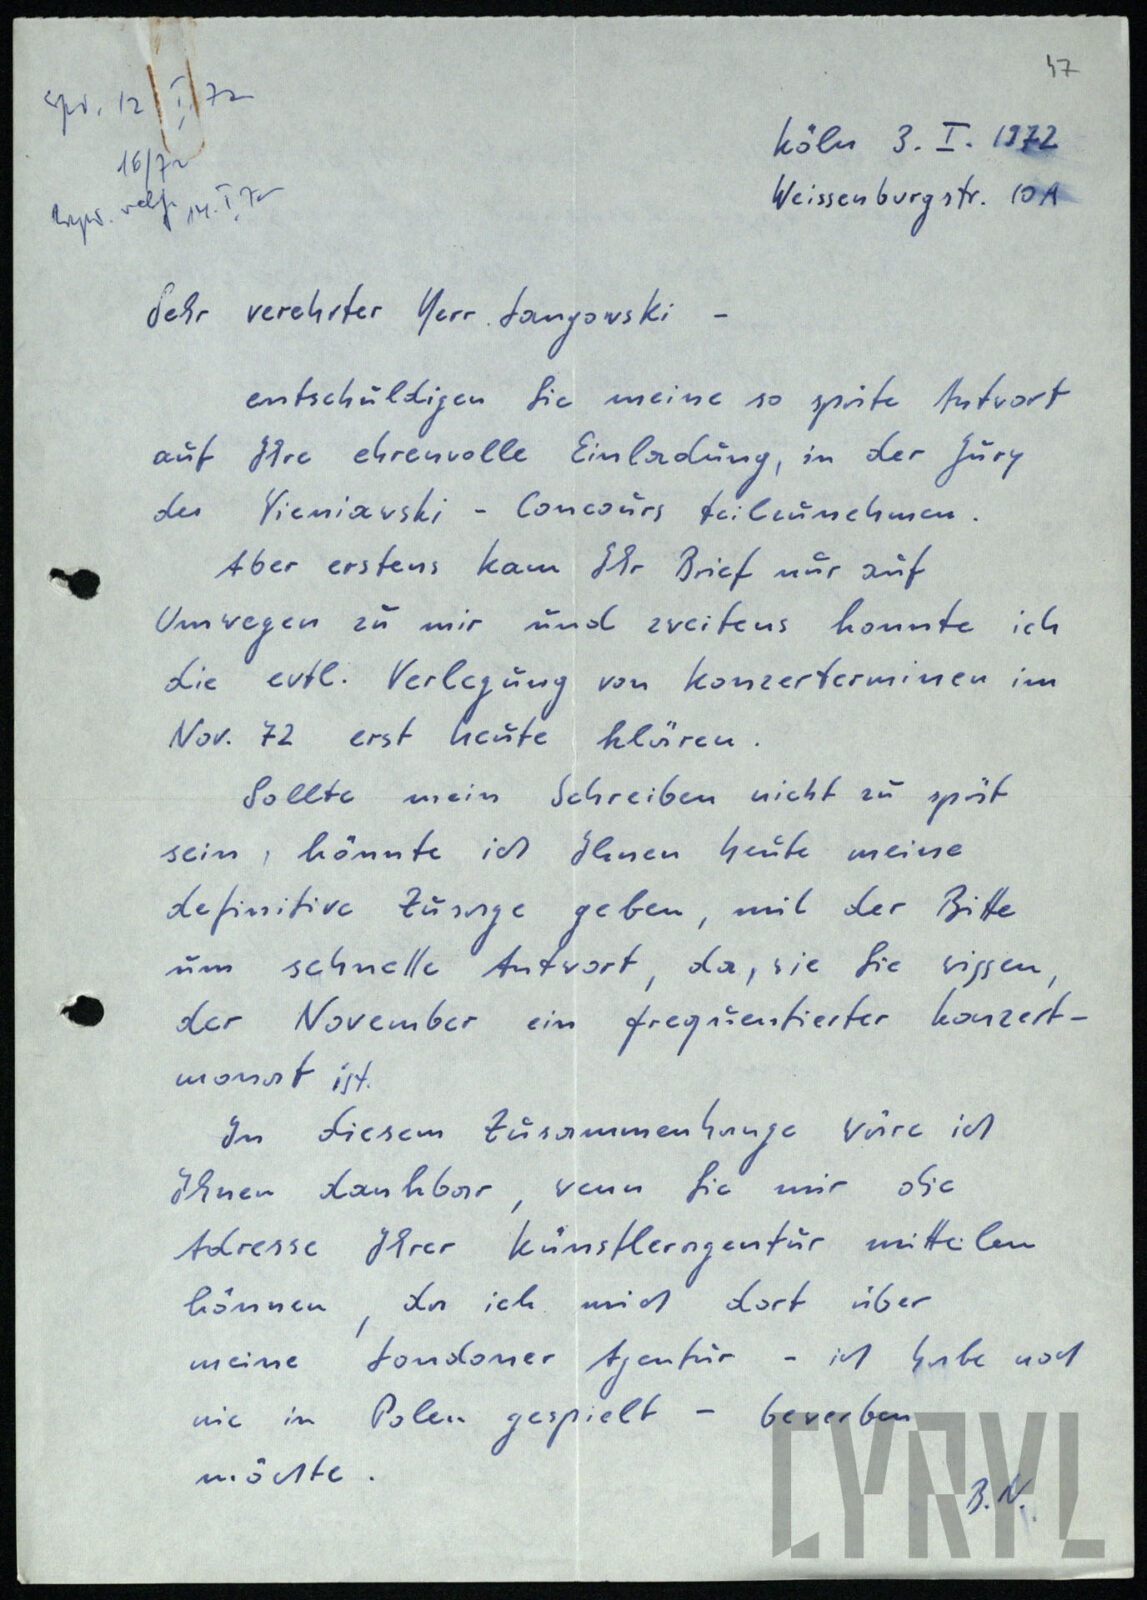 47
wpł. 12 I. 72
16/72
14. I. 72
Köln 3. I. 1972
Weissenburgstr. 10A
Sehr verehrter Herr Langowski -
entschuldigen Sie meine so späte Antwort
auf Ihre ehrenvolle Einladung, in der Jury
des Wieniawski - Concours teilzunehmen.
Aber erstens kam Ihr Brief nur auf
Umwegen zu mir und zweitens konnte ich
die evtl. Verlegung von Konzertterminen im
Nov. 72 erst heute klären.
Sollte mein Schreiben nicht zu spät
sein, könnte ich Ihnen heute meine
definitive Zusage geben, mit der Bitte
um schnelle Antwort, da, wie Sie wissen,
der November ein frequentierter Konzert-
monat ist.
In diesem Zusammenhange wäre ich
Ihnen dankbar, wenn Sie mir die
Adresse Ihrer Künstleragentur mitteilen
können, da ich mich dort über
meine Londoner Agentur - ich habe noch
nie in Polen gespielt - bewerben
möchte.
B.W.
CYRYL